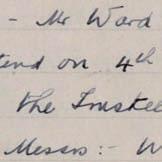 - Mr Ward
tend on 4th
the Trustee
Messrs :- W